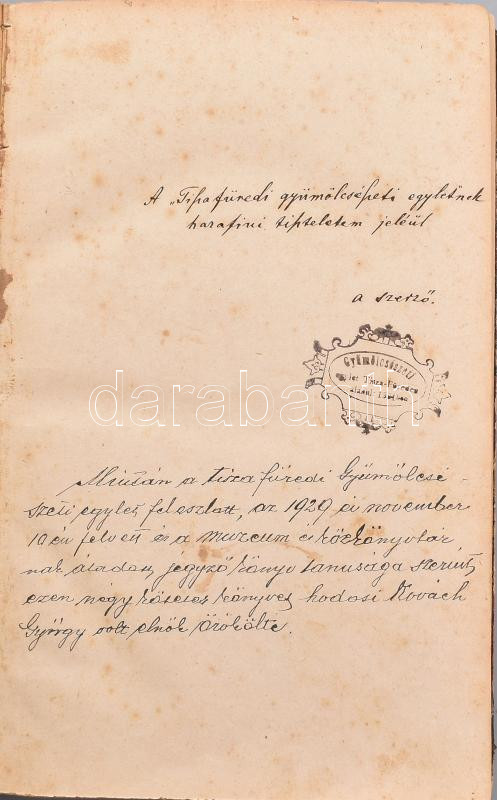 A „Tißafüredi gyümölcsészeti egyletnek
hazafiui tiszteletem jeléül
a szerző.
Gyümölcsészeti
egylet Tisza-Füreden
darabanth
Miután a tisza füredi Gyümölcsé-
szeti egylet feloszlatt, az 1929 év november
10 én felvett és a muzeum és közkönyvtár
nak átadott jegyző könyv tanusága szerint,
ezen négy köteles könyvet hodosi Kovách
György volt elnök örökölte.